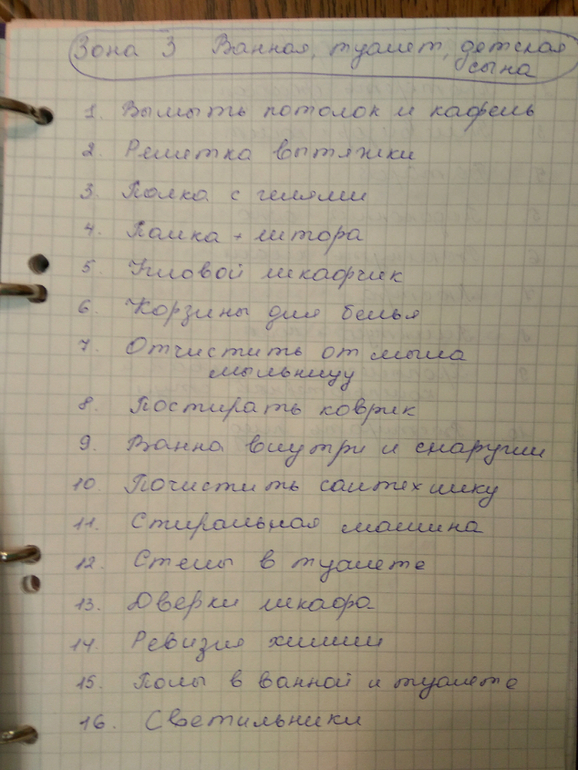 Зона 3 Ванная, туалет, детская
сына
1. Вымыть потолок и кафель
2. Решетка вытяжки
3. Полка с гелями
4. Полка + штора
5. Угловой шкафчик
6. Корзины для белья
7. Отчистить от мыла
мыльницу
8. Постирать коврик
9. Ванна внутри и снаружи
10. Почистить сантехнику
11. Стиральная машина
12. Стены в туалете
13. Дверки шкафа
14. Ревизия химии
15. Полы в ванной и туалете
16. Светильники